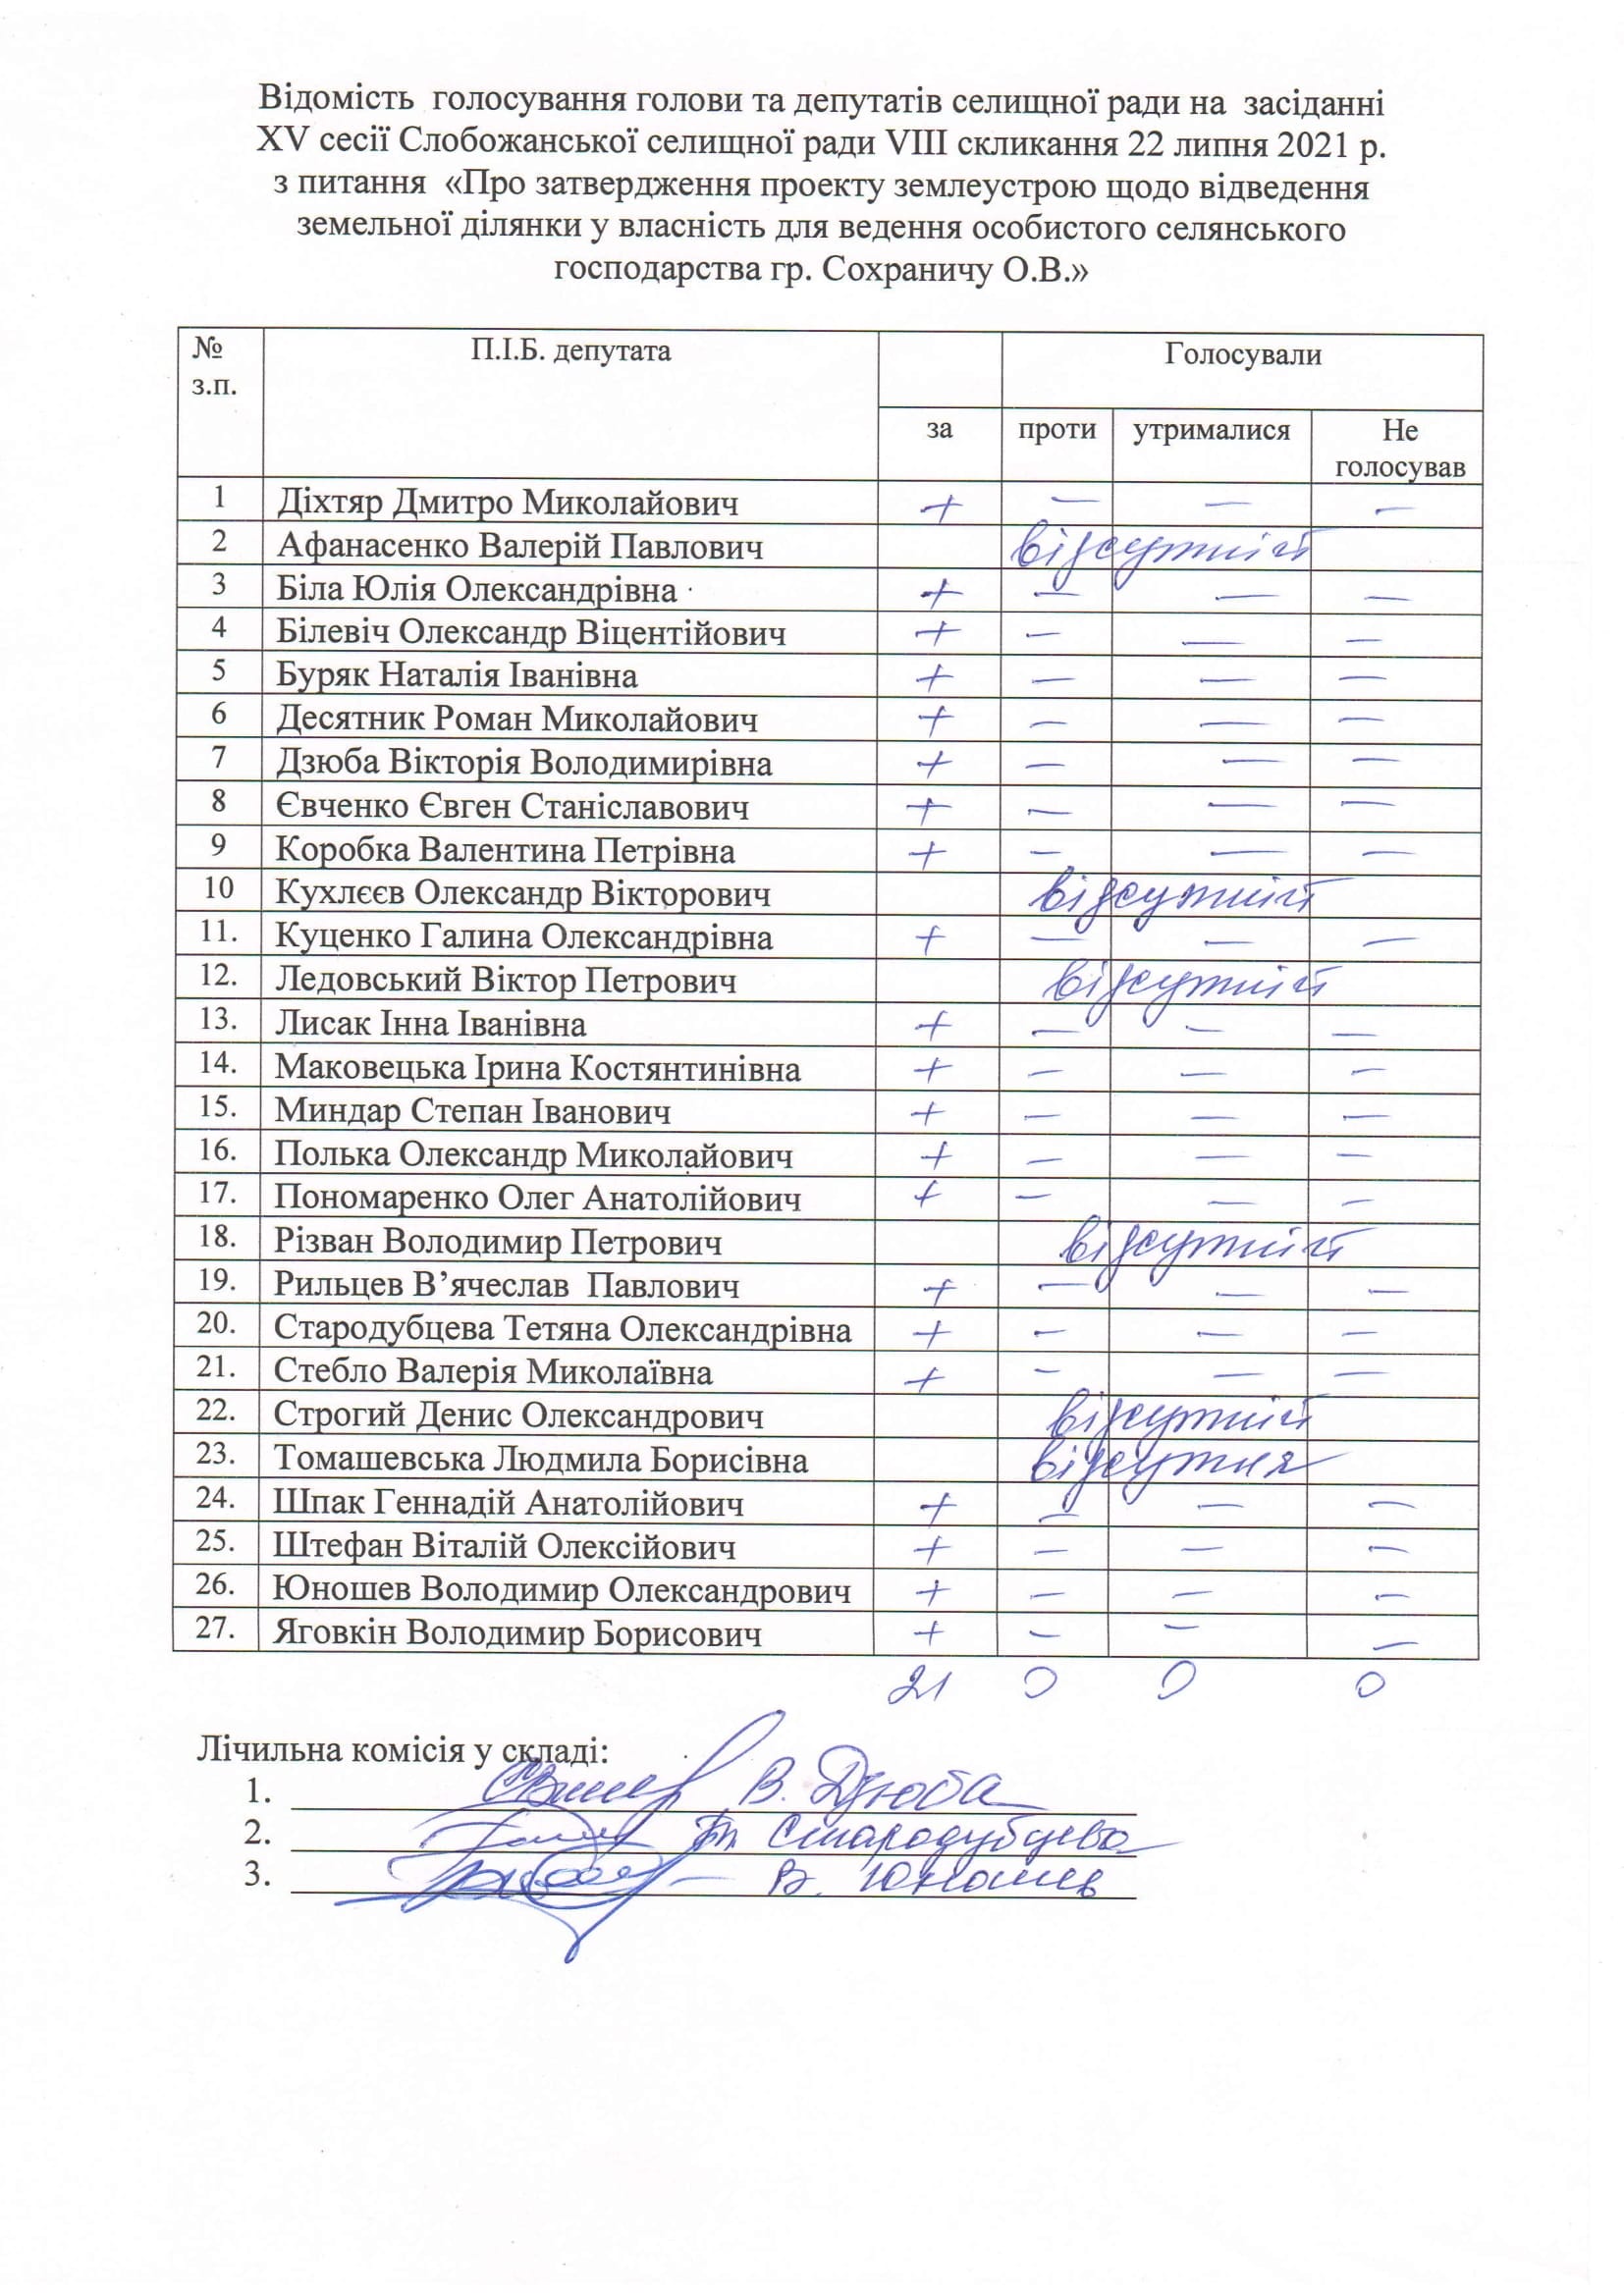 Відомість голосування голови та депутатів селищної ради на засіданні
XV сесії Слобожанської селищної ради VIII скликання 22 липня 2021 р.
з питання «Про затвердження проекту землеустрою щодо відведення
земельної ділянки у власність для ведення особистого селянського
господарства гр. Сохраничу О.В.»
№ з.п. П.І.Б. депутата Голосували
за проти утрималися Не голосував
1 Діхтяр Дмитро Миколайович + — — —
2 Афанасенко Валерій Павлович відсутній
3 Біла Юлія Олександрівна + — — —
4 Білевіч Олександр Віцентійович + — — —
5 Буряк Наталія Іванівна + — — —
6 Десятник Роман Миколайович + — — —
7 Дзюба Вікторія Володимирівна + — — —
8 Євченко Євген Станіславович + — — —
9 Коробка Валентина Петрівна + — — —
10 Кухлєєв Олександр Вікторович відсутній
11. Куценко Галина Олександрівна + — — —
12. Ледовський Віктор Петрович відсутній
13. Лисак Інна Іванівна + — — —
14. Маковецька Ірина Костянтинівна + — — —
15. Миндар Степан Іванович + — — —
16. Полька Олександр Миколайович + — — —
17. Пономаренко Олег Анатолійович + — — —
18. Різван Володимир Петрович відсутній
19. Рильцев В’ячеслав Павлович + — — —
20. Стародубцева Тетяна Олександрівна + — — —
21. Стебло Валерія Миколаївна + — — —
22. Строгий Денис Олександрович відсутній
23. Томашевська Людмила Борисівна відсутня
24. Шпак Геннадій Анатолійович + — — —
25. Штефан Віталій Олексійович + — — —
26. Юношев Володимир Олександрович + — — —
27. Яговкін Володимир Борисович + — — —
21 0 0 0
Лічильна комісія у складі:
1. В. Дзюба
2. Т. Стародубцева
3. В. Юношев